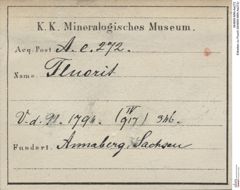 K. K. Mineralogisches Museum.
Acq. Post A. c. 272.
Name: Fluorit
V. d. N. 1794. (IV 917) 346.
Fundort: Annaberg, Sachsen